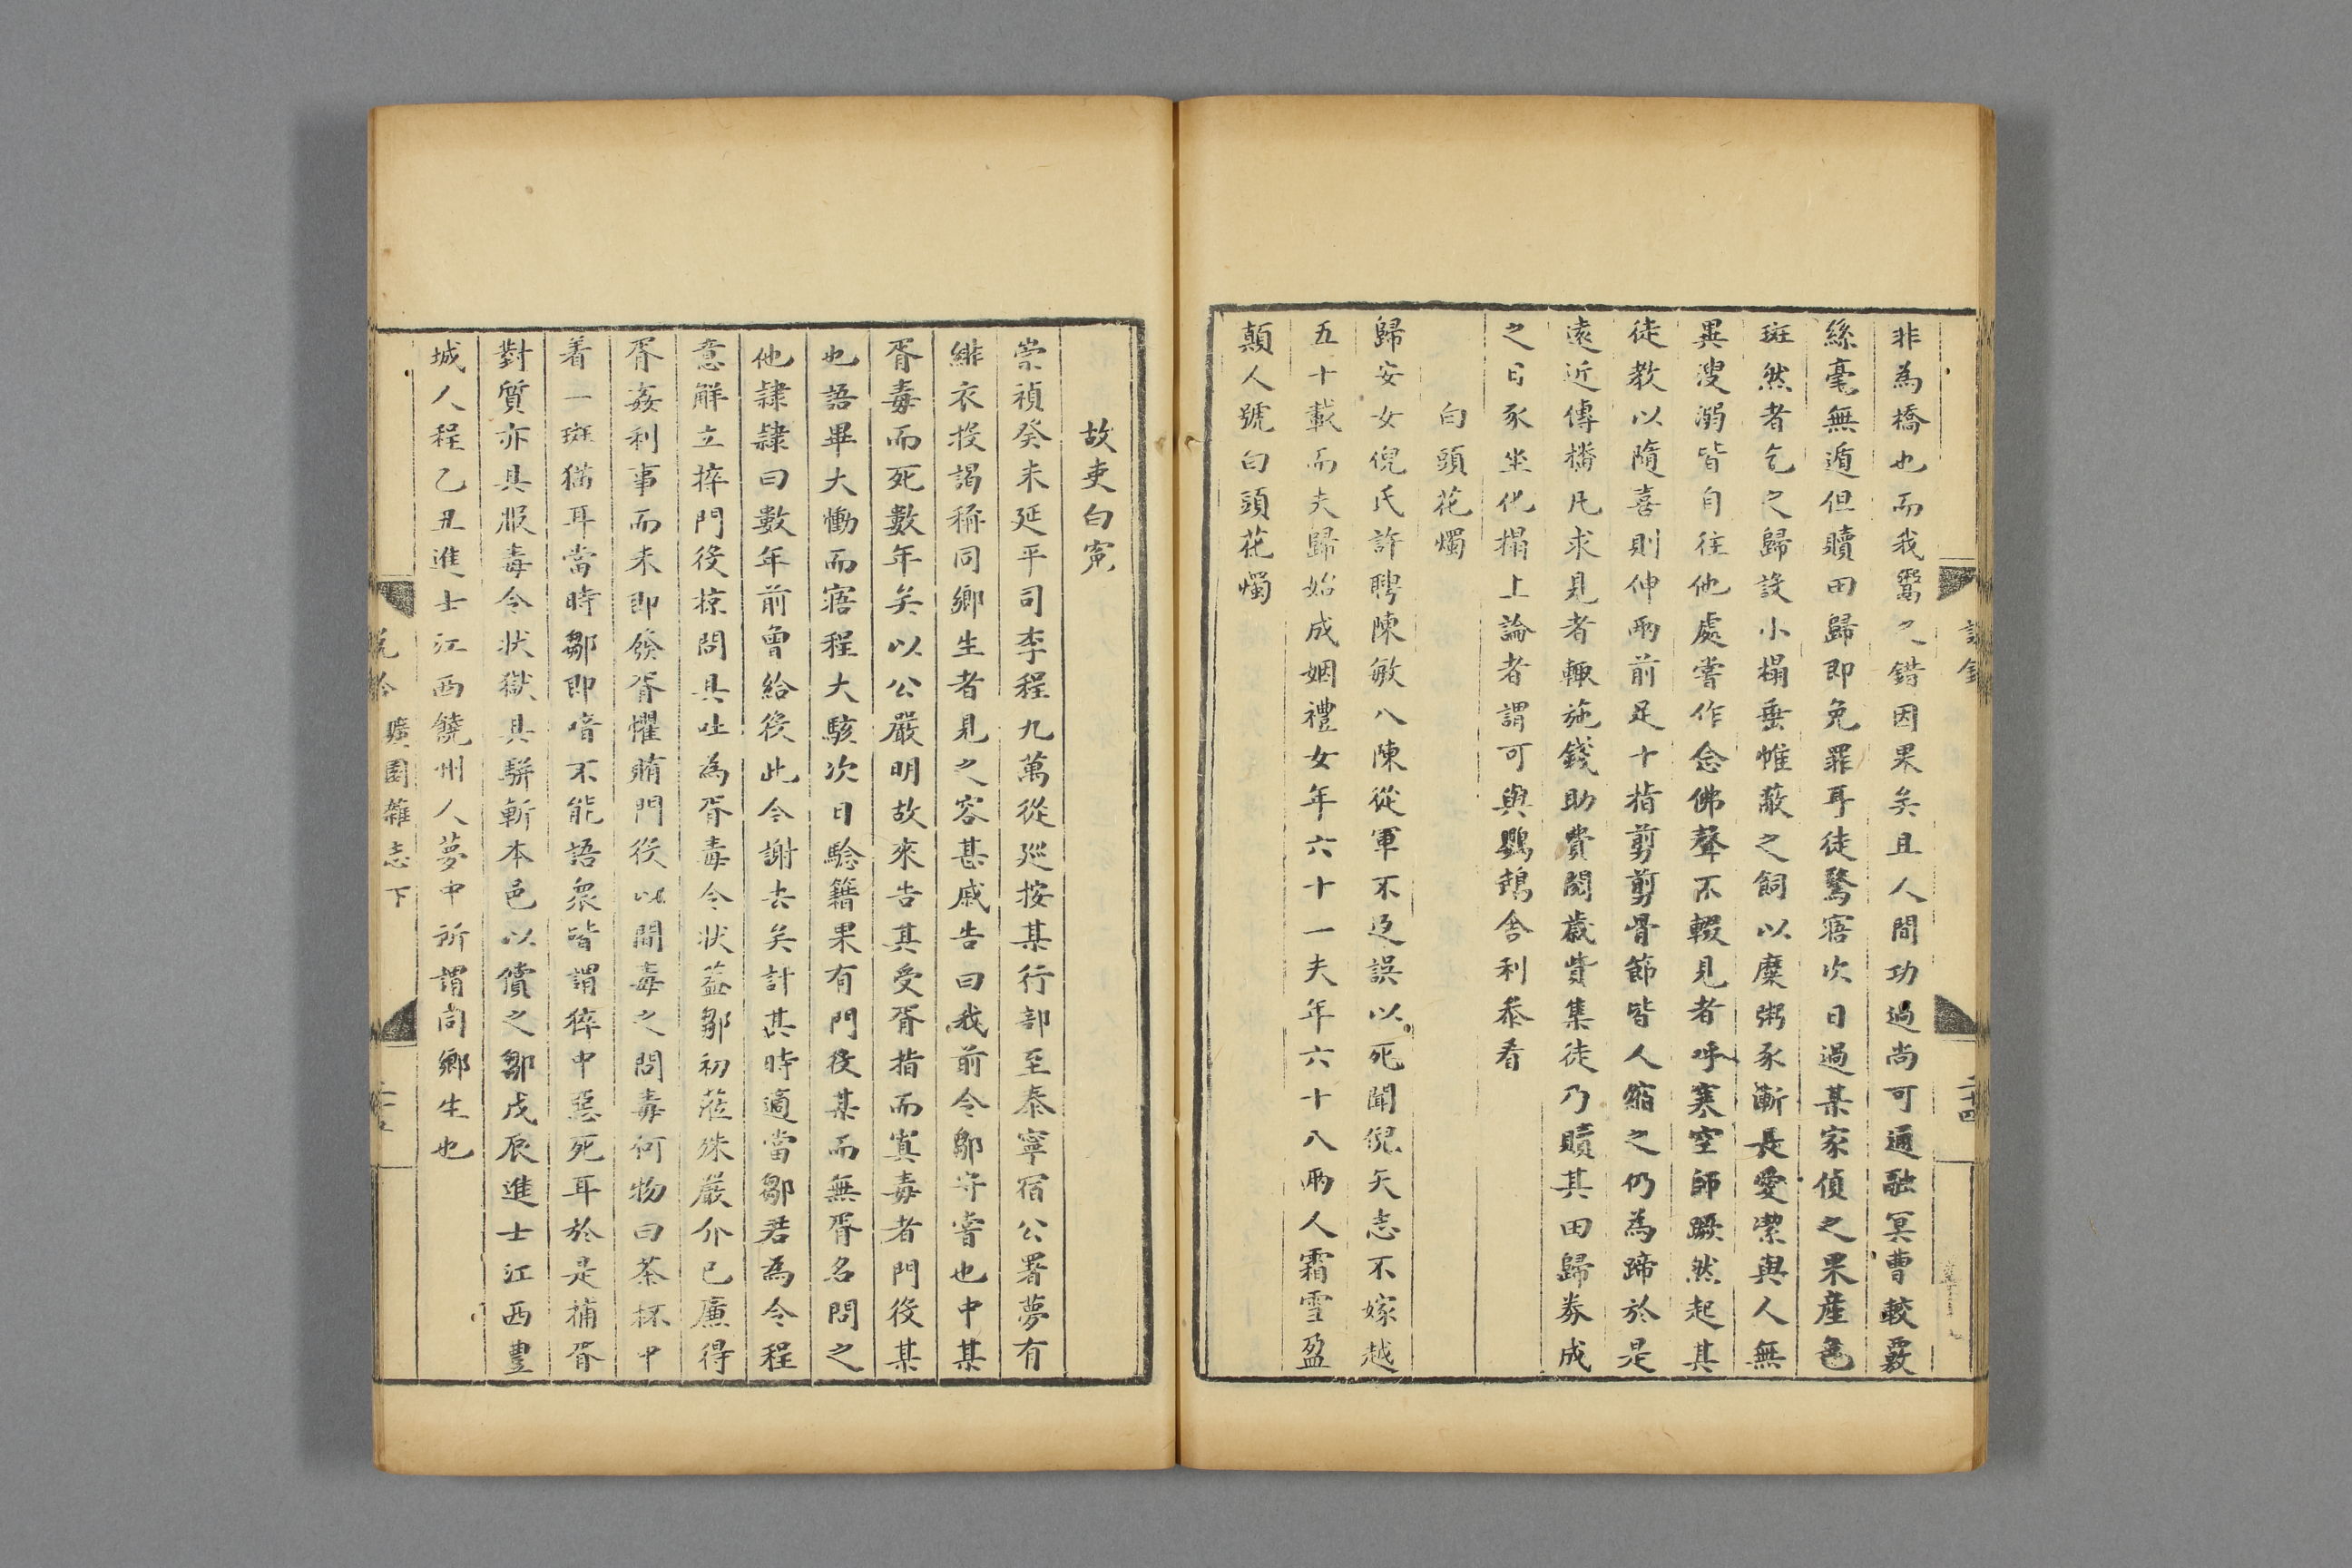 非為橋也而我鬻之錯因果矣且人間功過尚可通融冥曹較覈
絲毫無遁但贖田歸即免罪耳徒驚寤次日過某家偵之果產色
斑然者乞之歸設小榻垂帷蔽之飼以糜粥豕漸長愛潔與人無
異溲溺皆自往他處嘗作念佛聲不輟見者呼寒空師蹶然起其
徒教以隨喜則伸兩前足十指剪剪骨節皆人縮之仍為蹄於是
遠近傳播凡求見者輒施錢助費閱歲貲集徒乃贖其田歸券成
之日豕坐化榻上論者謂可與鸚鵡舍利叅看
白頭花燭
歸安女倪氏許聘陳敏八陳從軍不返誤以死聞倪矢志不嫁越
五十載而夫歸始成姻禮女年六十一夫年六十八兩人霜雪盈
顛人號白頭花燭
故吏白寃
崇禎癸未延平司李程九萬從廵按某行部至泰寧宿公署夢有
緋衣投謁稱同鄉生者見之容甚戚告曰我前令鄒守嘗也中某
胥毒而死數年矣以公嚴明故來告其受胥指而寘毒者門役某
也語畢大慟而寤程大駭次日驗籍果有門役某而無胥名問之
他隸隸曰數年前曾給役此今謝去矣計其時適當鄒君為令程
意解立捽門役掠問具吐為胥毒令狀葢鄒初蒞殊嚴介已廉得
胥姦利事而未即發胥懼賄門役以間毒之問毒何物曰茶杯中
着一斑猫耳當時鄒即喑不能語衆皆謂猝中惡死耳於是捕胥
對質亦具服毒令狀獄具駢斬本邑以償之鄒戊辰進士江西豐
城人程乙丑進士江西饒州人夢中所謂同鄉生也
說鈴 曠園雜志下